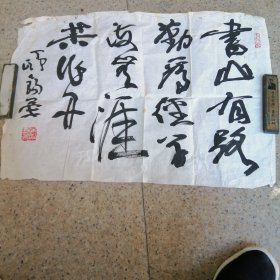 書山有路
勤為徑学
海無涯
苦作舟